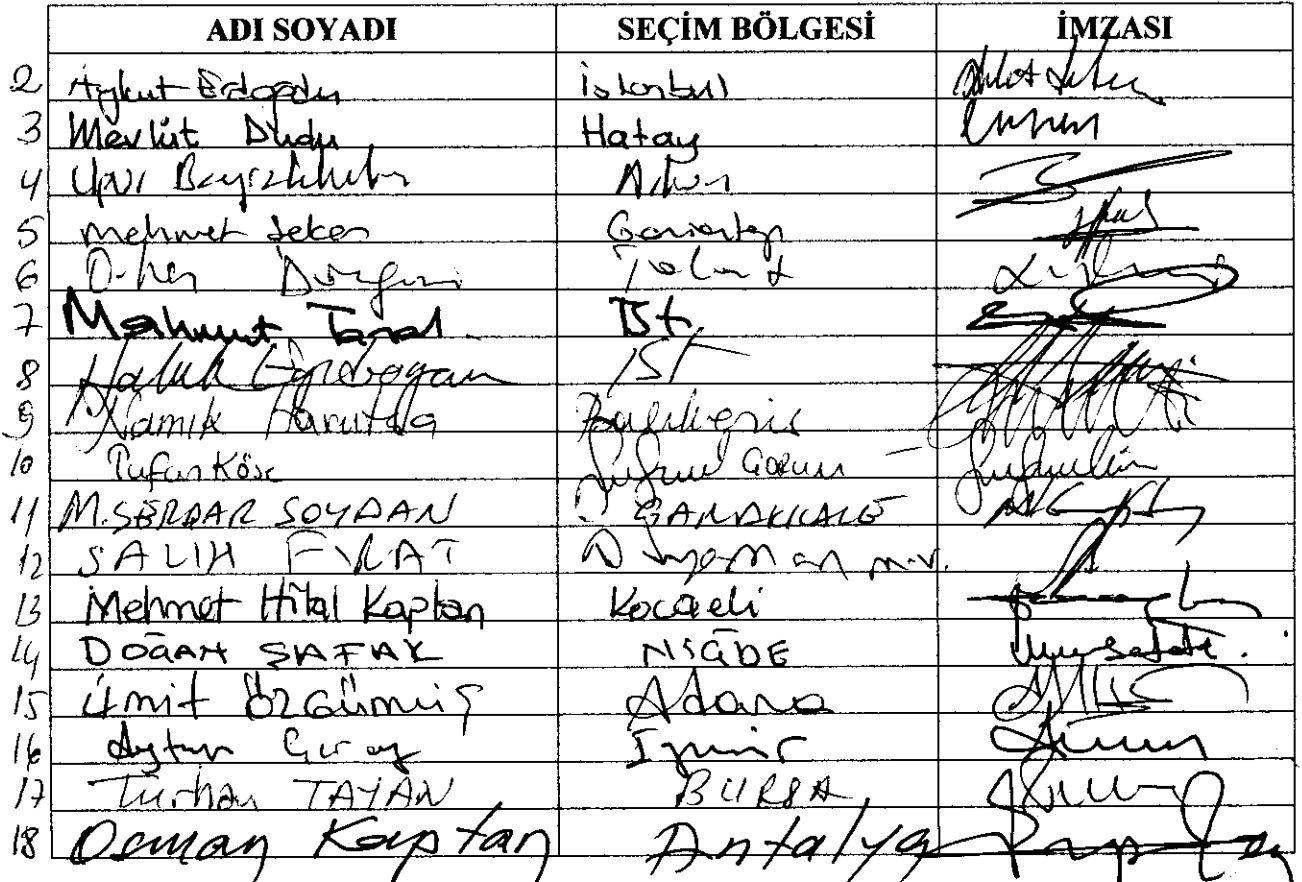 ADI SOYADI SEÇİM BÖLGESİ İMZASI
2 Aykut Erdoğdu İstanbul
3 Mevlüt Dudu Hatay
4 Uğur Bayraktutan Artvin
5 Mehmet Şeker Gaziantep
6 Orhan Düzgün Tokat
7 Mahmut Tanal İst
8 Haluk Eyidoğan İST
9 Namık Havutça Balıkesir
10 Tufan Köse
11 M.SERDAR SOYDAN ÇANAKKALE
12 SALIH FIRAT Adıyaman m.v.
13 Mehmet Hilal Kaplan Kocaeli
14 DOĞAN ŞAFAK NİĞDE
15 Ümit ÖZGÜMÜŞ Adana
16 Aytun Çıray İzmir
17 Turhan TAYAN BURSA
18 Osman Kaptan Antalya